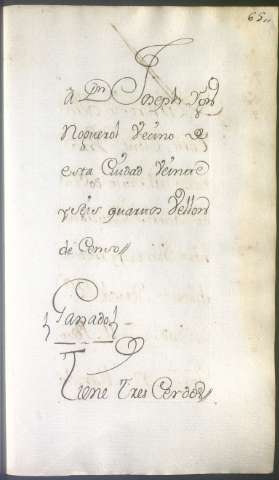 65
A Dn Joseph
Noguerol Vecino de
esta Ciudad Veinte
y seis quartos Vellon
de Censo
Ganado
Tiene Tres Cerdos